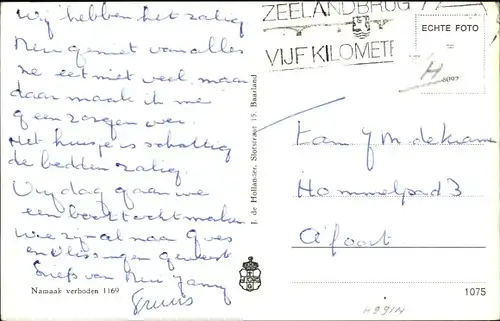 Wij hebben het zalig
Rien geniet van alles
ze eet niet veel, maar
daar maak ik me
geen zorgen over.
Het huisje is schattig
de bedden zalig.
Vrijdag gaan we
een boottocht maken
We zijn al naar Goes
en Vlissingen geweest
Liefs van Rien Janny
Truus
Namaak verboden 1169
J. de Hollander, Slotstraat 15, Baarland
ZEELANDBRUG
VIJF KILOMETE
ECHTE FOTO
=
Fam J M de
Hommelpad 3
A'foort
1075